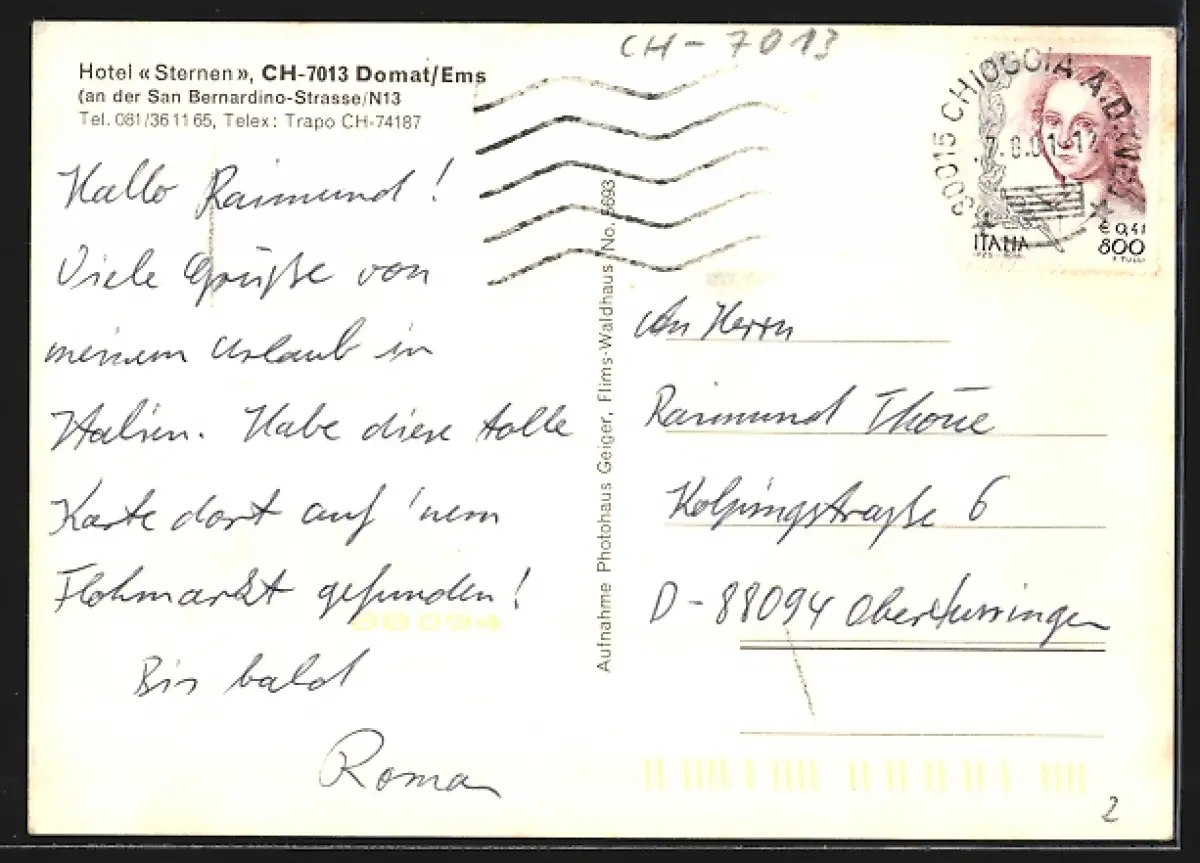 CH-7013
Hotel «Sternen», CH-7013 Domat/Ems
(an der San Bernardino-Strasse/N13
Tel. 081/36 11 65, Telex: Trapo CH-74187
Hallo Raimund!
Viele Grüße von
meinem Urlaub in
Italien. Habe diese tolle
Karte dort auf 'nem
Flohmarkt gefunden!
Bis bald
Roman
88094
Aufnahme Photohaus Geiger, Flims-Waldhaus No. 5693
30015 CHIOGGIA A.D. (VE)
7.8.01-12
€ 0,41
ITALIA 800
An Herrn
Raimund
Kolpingstraße 6
D-88094 Oberteuringen
2